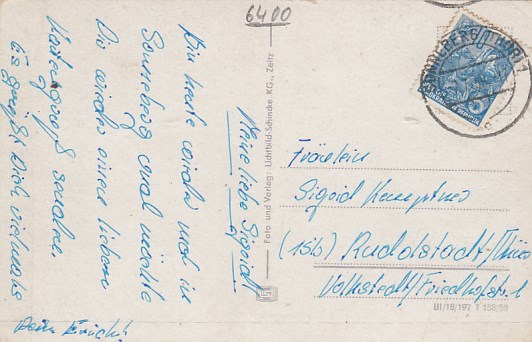 6400
Meine liebe Sigrid!
Bin heute wieder mal in
Sonneberg und möchte
Dir wieder einen lieben
Kartengruß senden.
Es grüßt Dich vielmals
Dein Erich!
Foto und Verlag: Lichtbild-Schincke KG., Zeitz
SONNEBERG (THÜR) 1
Fräulein
Sigrid
(15b) Rudolstadt/Thür
Volkstedt/Friedhofstr. 1
III/18/197 T 158/58